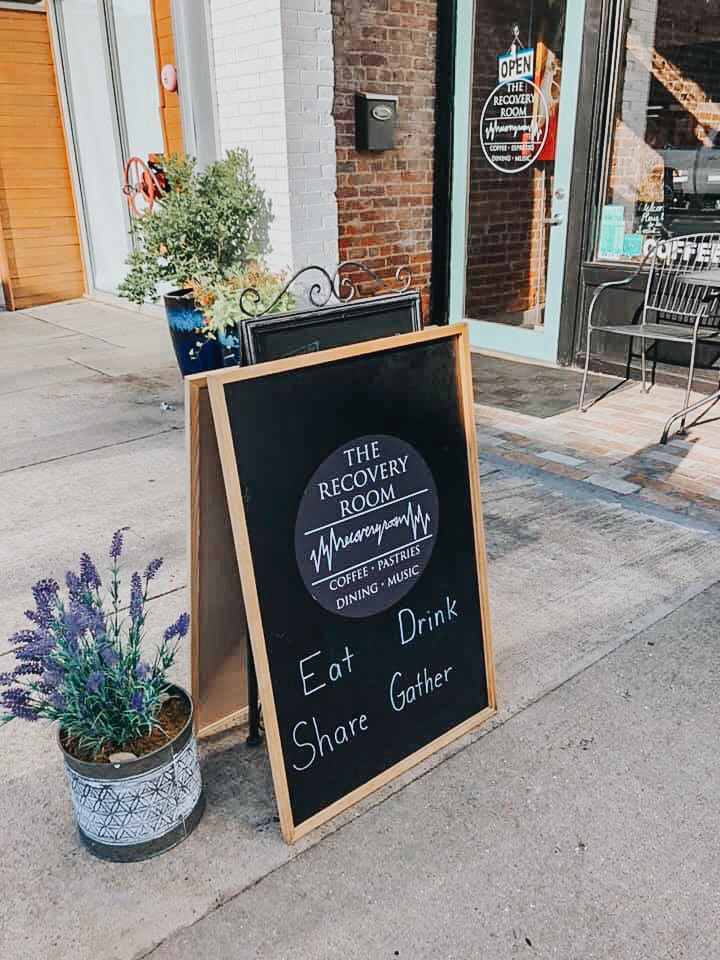 OPEN
THE
RECOVERY
ROOM
recoveryroom
COFFEE • ESPRESSO
DINING • MUSIC
COFFEE
THE
RECOVERY
ROOM
recoveryroom
COFFEE • PASTRIES
DINING • MUSIC
Eat Drink
Share Gather